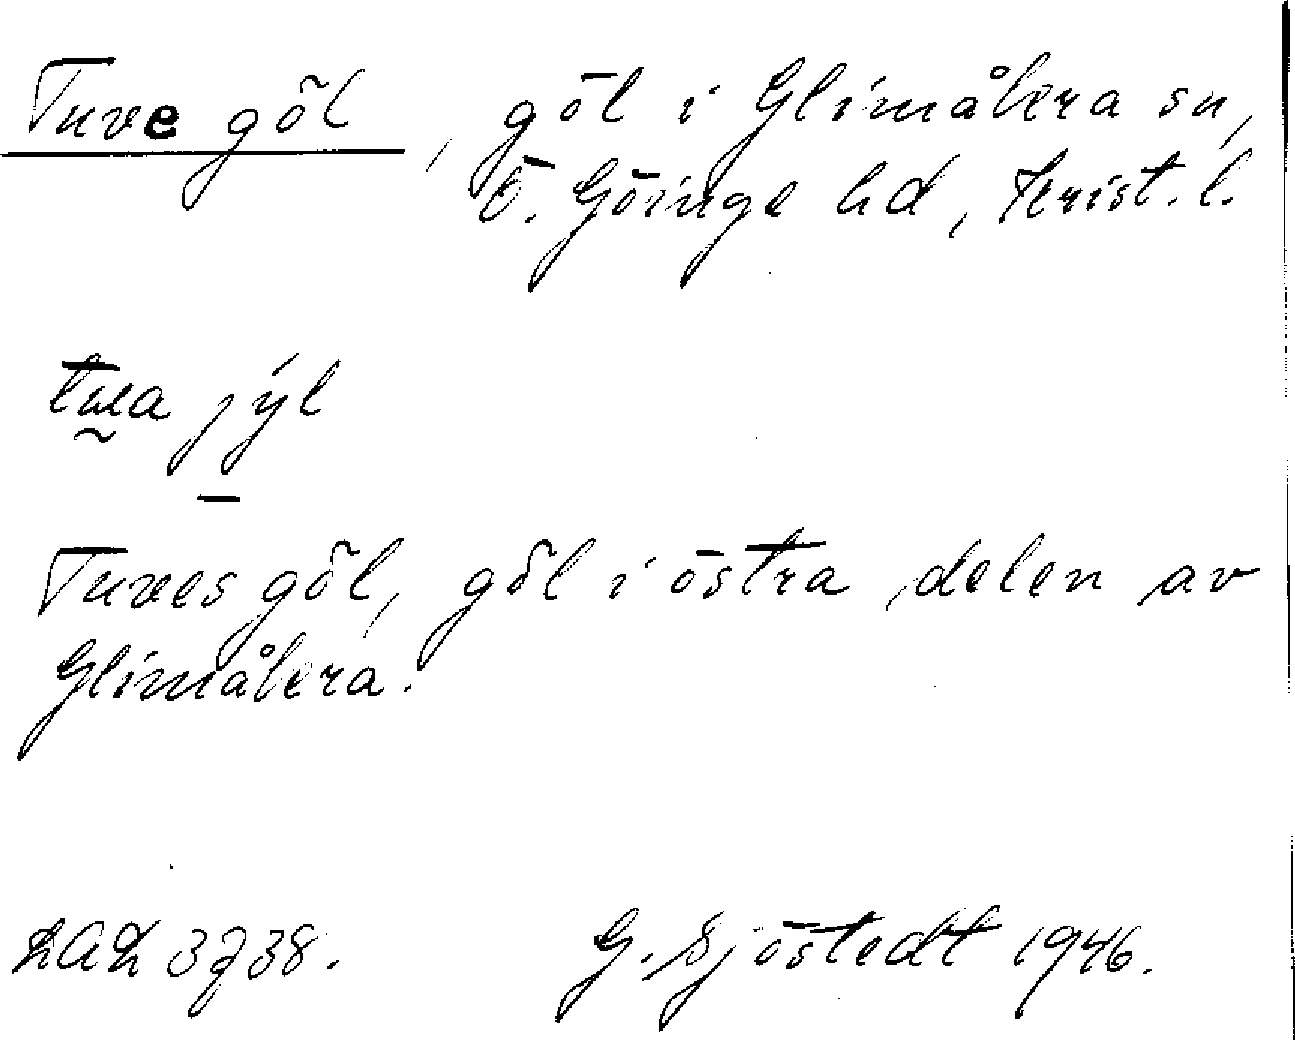 Tuve göl, göl i Glimåkra sn,
Ö. Göinge hd, Krist. l.
jýl
Tuves göl, göl i östra delen av
Glimåkra.
LAL 3738. G. Sjöstedt 1946.